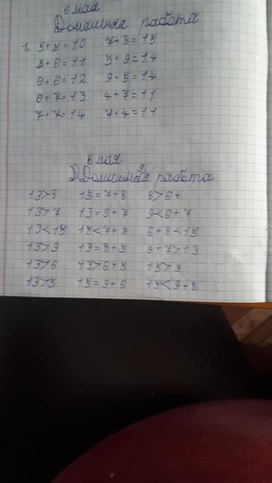 6 мая
Домашняя работа
1. 5+5=10 7+8=15
5+6=11 5+9=14
6+6=12 9+5=14
6+7=13 4+7=11
7+7=14 7+4=11
8 мая
Домашняя работа
13>8 15=7+8 8>6+
13>7 13=6+7 9<6+7
13<15 15<7+9 6+8<15
13>9 13=8+5 9+7>13
13>6 13>6+5 15>9
13>5 15=9+6 15<9+8